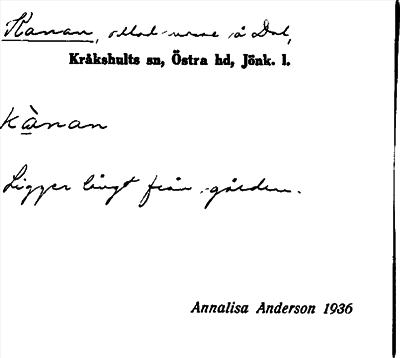 Kanan, på Dal,
Kråkshults sn, Östra hd, Jönk. l.
kànan
Ligger långt från gården.
Annalisa Anderson 1936